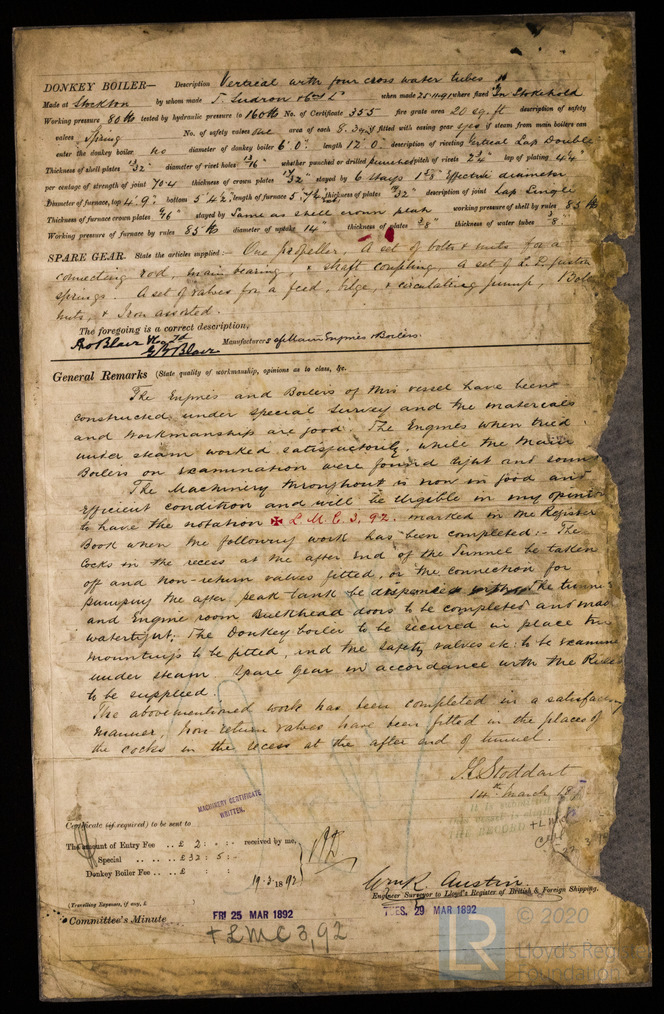 DONKEY BOILER— Description Vertical with four cross water tubes
Made at Stockton by whom made T. Sudron & Co Ld when made 25-11-91 where fixed In Stokehold
Working pressure 80 lb tested by hydraulic pressure to 160 lb No. of Certificate 355 fire grate area 20 sq. ft description of safety
valves Spring No. of safety valves one area of each fitted with easing gear yes if steam from main boilers can
enter the donkey boiler no diameter of donkey boiler 6' 0" length 12' 0" description of riveting Vertical Lap Double
Thickness of shell plates 13/32" diameter of rivet holes 13/16" whether punched or drilled punched pitch of rivets lap of plating
per centage of strength of joint 70.4 thickness of crown plates 17/32" stayed by 6 stays 1 5/8" Effective diameter
Diameter of furnace, top 4' 9" bottom length of furnace thickness of plates description of joint Lap Single
Thickness of furnace crown plates stayed by Same as shell crown working pressure of shell by rules 85 lb
Working pressure of furnace by rules 85 lb diameter of uptake 14" thickness of plates 3/8" thickness of water tubes 3/8"
SPARE GEAR. State the articles supplied:— One propeller, A set of bolts & nuts for a
connecting rod, main bearing, & shaft coupling, A set of L.P. piston
springs. A set of valves for a feed, bilge, & circulating pump, Bolts
nuts, & Iron assorted.
The foregoing is a correct description,
Geo Blair Manufacturers of Main Engines & Boilers.
G Blair
General Remarks (State quality of workmanship, opinions as to class, &c.
The Engines and Boilers of this vessel have been
constructed under special survey and the materials
and workmanship are good. The Engines when tried
under steam worked satisfactorily, while the Main
Boilers on examination were found tight and sound
The Machinery throughout is now in good and
efficient condition and will be eligible in my opinion
to have the notation ✠ L.M.C. 3, 92. marked in the Register
Book when the following work has been completed:- The
cocks in the recess at the after end of the Tunnel be taken
off and non-return valves fitted, or the connection for
pumping the after peak tank be dispensed with. The tunnel
and Engine room Bulkhead doors to be completed and made
watertight, The Donkey boiler to be secured in place the
mountings to be fitted, and the safety valves &c to be examined
under steam. Spare gear in accordance with the Rules
to be supplied.
The abovementioned work has been completed in a satisfactory
manner, non-return valves have been fitted in the places of
the cocks in the recess at the after end of tunnel.
Stoddart
14th March
MACHINERY CERTIFICATE
WRITTEN.
Certificate (if required) to be sent to
The amount of Entry Fee .. £ 2 : received by me,
Special .. £ 32 : 5 :
Donkey Boiler Fee .. £
19.3.1892
Wm R. Austin.
Engineer Surveyor to Lloyd's Register of British & Foreign Shipping.
(Travelling Expenses, if any, £
Committee's Minute FRI 25 MAR 1892 TUES. 29 MAR 1892
+ LMC 3,92
© 2020
LR Lloyd's Register
Foundation